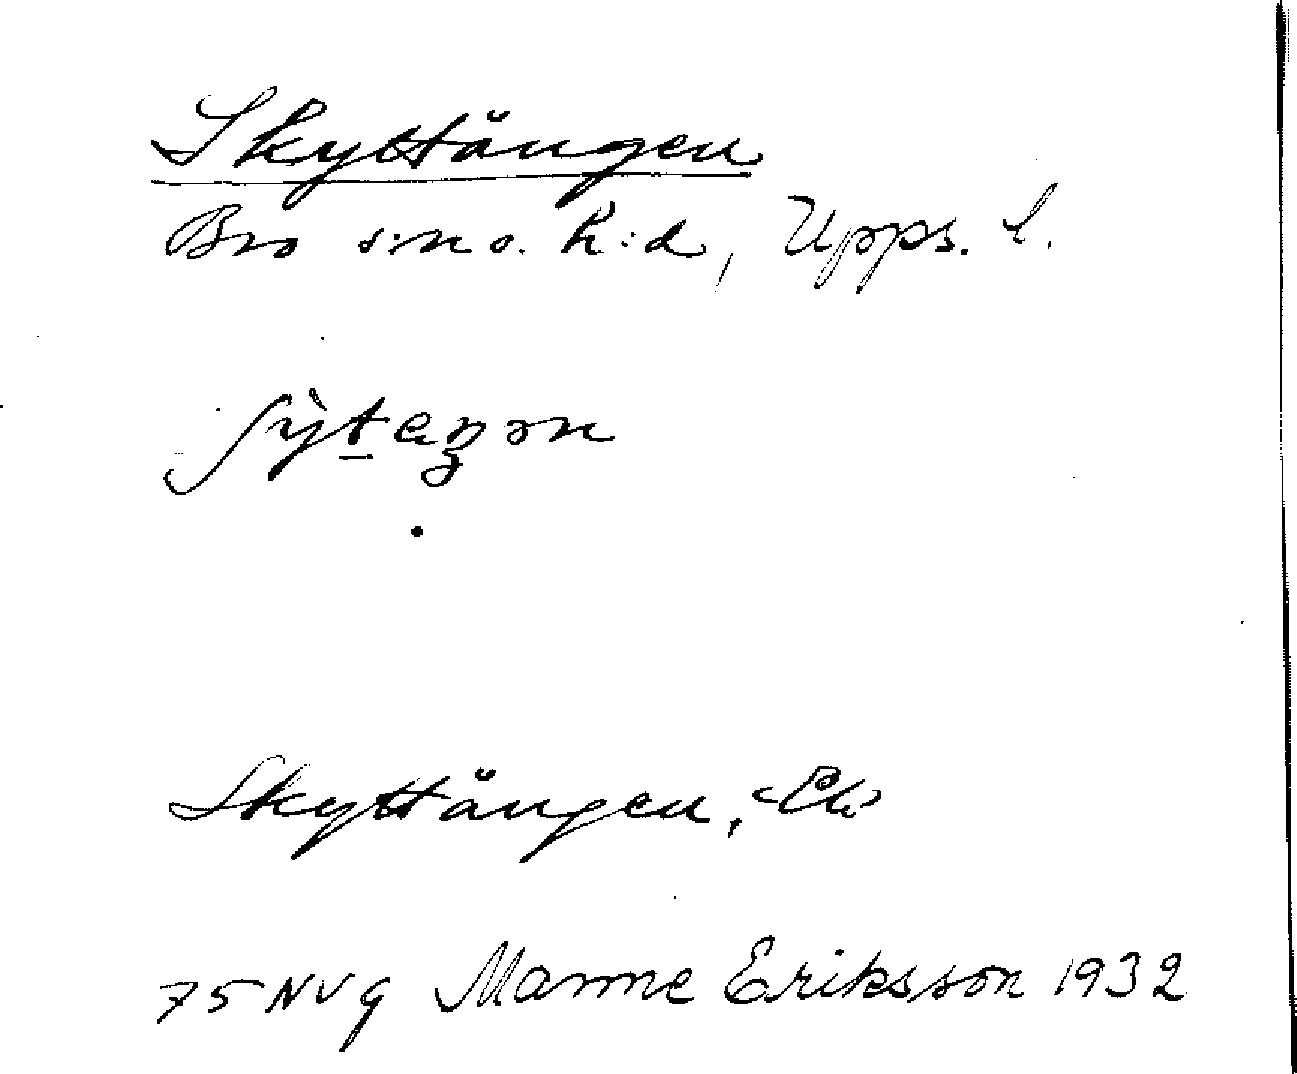 Skyttängen
Bro sn o. h:d, Upps. l.
ʃỳteŋən
Skyttängen, Ek
75 NVg Manne Eriksson 1932